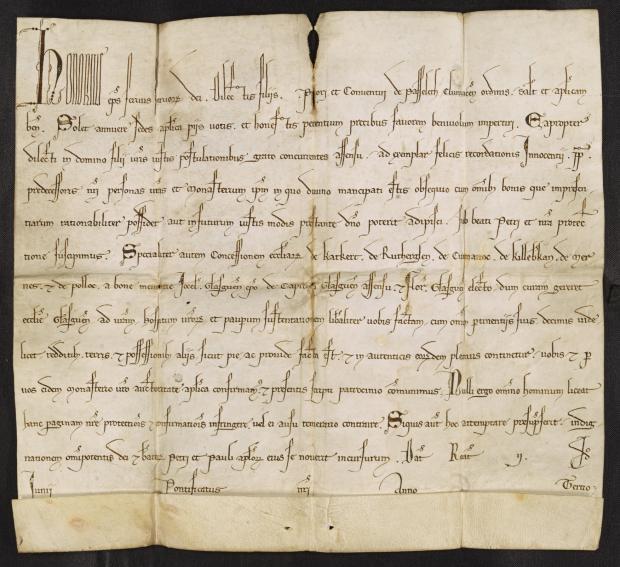 Honorius eps servus servor dei. Dilectis filiis. Priori et Conventui de Passelech Cluniacen ordinis. salt et aplicam
ben. Solet annuere sedes aplica piis votis. et honestis petentium precibus favorem benivolum impertiri. Eapropter
dilecti in domino filii vris iustis postulationibus grato concurrentes assensu. ad exemplar felicis recordationis Innocentii. PP.
predecessoris nri personas vras et Monasterium ipm in quo divino mancipati estis obsequio cum omnib bonis que impresen
tiarum rationabiliter possidet aut infuturum iustis modis prestante dno poterit adipisci. sub beati Petri et nra protec
tione suscipimus. Specialiter autem Concessionem eccliarz de Katkert. de Rutherglen. de Cumanoc. de Killebkan. de Mer
nes. & de Polloc. a bone memorie Jocel. Glasguen epo de Capituli Glasguen assensu. & Flor. Glasguen electo. dum curam gereret
ecclie Glasguen ad vrum hospitum vrorz et pauperum sustentationem liberaliter vobis factam. cum omib pertinentiis suis. decimis vide
licet redditib. terris. & possessionib aliis sicut pie ac provide facta est. & in autenticis eorzdem plenius continetur. vobis & per
vos eidem monasterio vro auctoritate aplica confirmamus. & presentis scripti patrocinio communimus. Nulli ergo omnino hominum liceat
hanc paginam nre protectionis & confirmationis infringere. vel ei ausu temerario contraire. Siquis aut hoc attemptare presumpserit. indig
nationem omnipotentis dei & beatorz Petri et Pauli aplorz eius se noverit incursurum. Dat Reat ij. Id
Junii Pontificatus nri Anno Tertio.